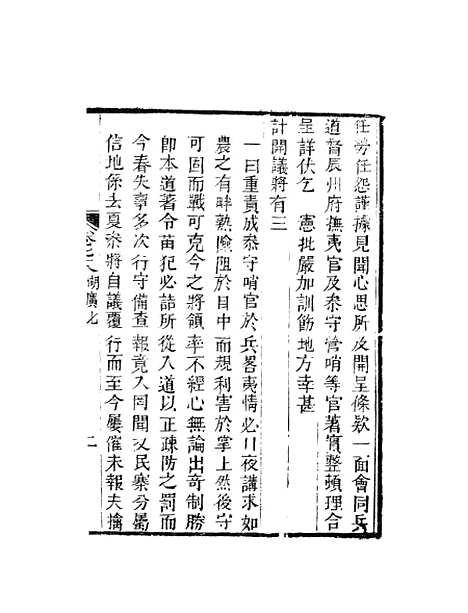 任勞任怨謹據見聞心思所及開呈條欵一面會同兵
道督辰州府撫夷官及叅守營哨等官著實整頓理合
呈詳伏乞　憲批嚴加訓飭地方幸甚
計開議將有三
一曰重責成叅守哨官於兵畧夷情必日夜講求如
農之有畔熟險阻於目中而規利害於掌上然後守
可固而戰可克今之將領率不經心無論出奇制勝
卽本道著令苗犯必詰所從入道以正疎防之罰而
今春失章多次行守備查報竟入罔聞又民寨分屬
信地係去夏叅將自議覆行而至今屢催未報夫擒
卷之八湖廣北
二